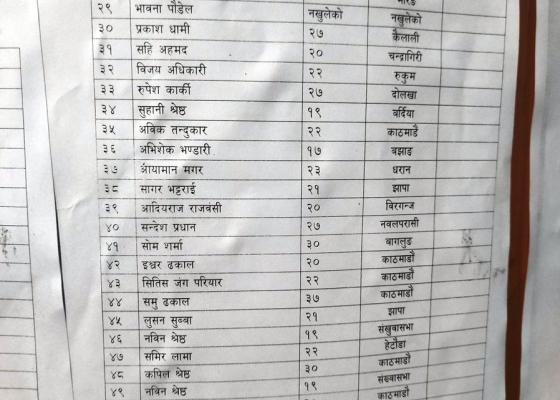 २९ भावना पौडेल नखुलेको नखुलेको
३० प्रकाश धामी २७ कैलाली
३१ सहि अहमद २० चन्द्रागिरी
३२ विजय अधिकारी २२ रुकुम
३३ रुपेश कार्की २७ दोलखा
३४ सुहानी श्रेष्ठ १९ बर्दिया
३५ अविक तन्दुकार २२ काठमाडौ
३६ अभिशेक भण्डारी १७ बझाङ
३७ आयामान मगर २३ धरान
३८ सागर भट्टराई २१ झापा
३९ आदियराज राजबंसी २० बिरगन्ज
४० सन्देश प्रधान २७ नवलपरासी
४१ सोम शर्मा ३० बागलुङ
४२ इश्वर ढकाल २० काठमाडौं
४३ सितिस जंग परियार २२ काठमाडौं
४४ समु ढकाल ३७ काठमाडौं
४५ लुसन सुब्बा २१ झापा
४६ नविन श्रेष्ठ १९ संखुवासभा
४७ समिर लामा २२ हेटौडा
४८ कपिल श्रेष्ठ ३० काठमाडौं
४९ नविन श्रेष्ठ १९ संख्वासभा
काठमाडौं